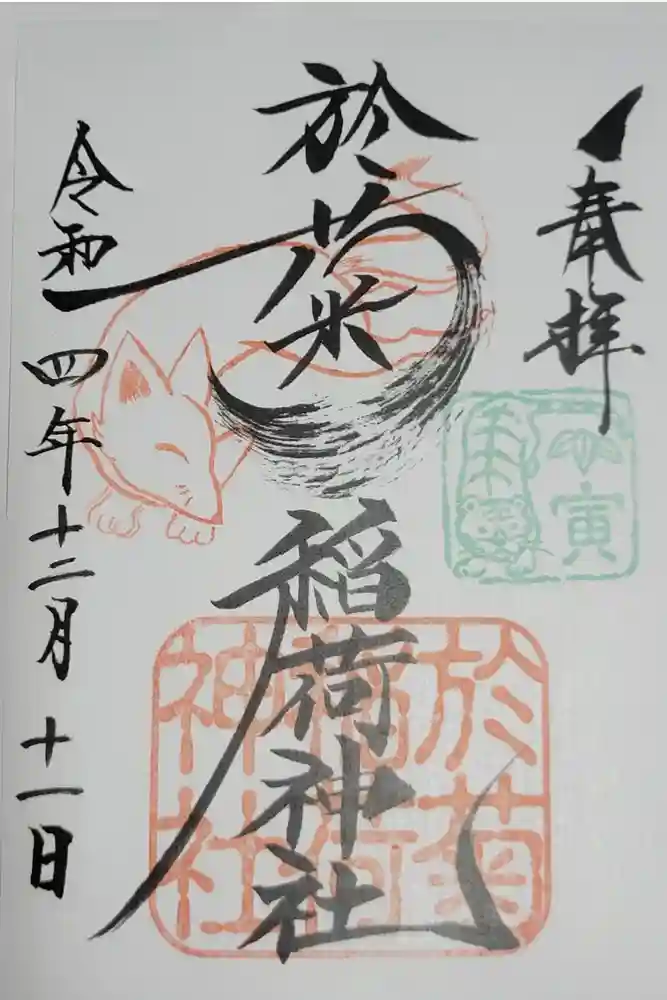 奉拝
寅
於菊稲荷神社
於菊
稲荷
神社
令和四年十二月十一日